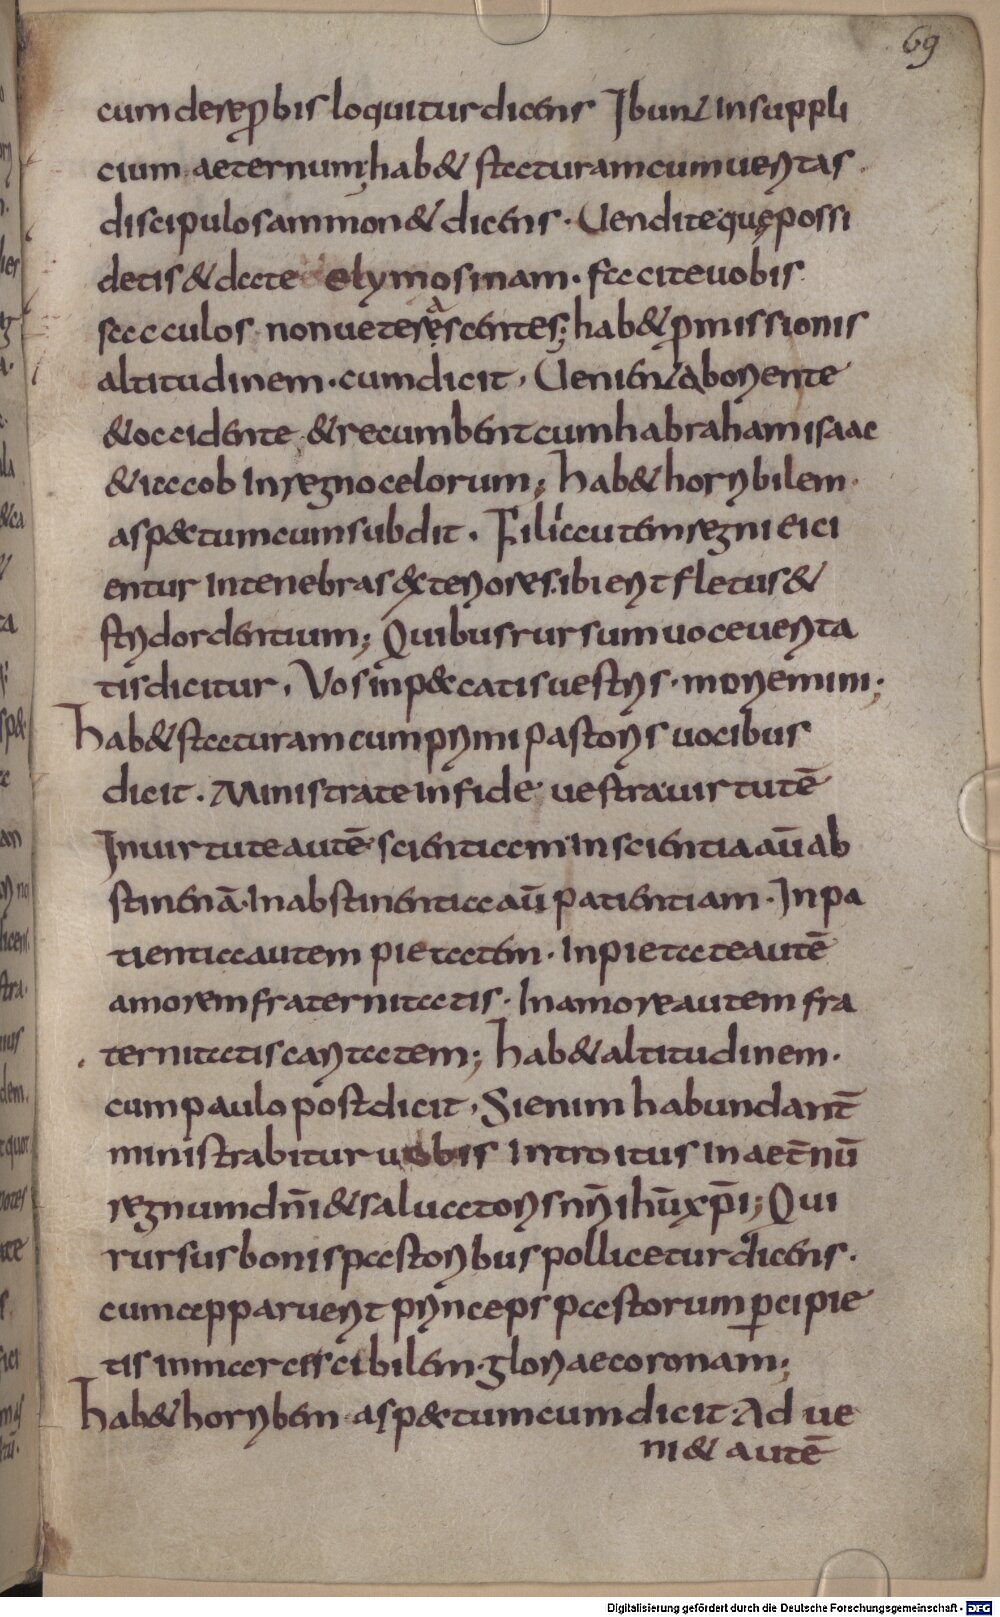 69
cum de reprobis loquitur dicens Ibunt in suppli
cium aeternum; hab& staturam cum ueritas
discipulos ammon& dicens · Uendite quę possi
detis & date elymosinam · facite uobis
sacculos non ueterascentes; hab& promissionis
altitudinem · cum dicit, Uenient ab oriente
& occidente & recumbent cum habraham isaac
& iacob In regno celorum; hab& horribilem
asp&tum cum subdit · Filii autem regni eici
entur In tenebras exteriores · ibi erit fletus &
stridor dentium; Quibus rursum uoce uerita
tis dicitur, Vos in p&catis uestris · moriemini;
hab& staturam cum primi pastoris uocibus
dicit · Ministrate In fide uestra uirtutē
In uirtute autē scientiam · In scientia aū ab
stinenā · In abstinentia aū patientiam · In pa
tientia autem pietatem · In pietate autē
amorem fraternitatis · In amore autem fra
ternitatis caritatem; hab& altitudinem ·
cum paulo post dicit, Si enim habundant̄
ministrabitur uobis Introitus In aet̄nū
regnum dn̄i & saluatoris nr̄i ihū xp̄i; Qui
rursus bonis pastoribus pollicetur dicens ·
cum apparuerit princeps pastorum p̲cipie
tis inmarciscibilem · gloriae coronam;
hab& horribēm asp&tum cum dicit · Ad ue
ni& autē
Digitalisierung gefördert durch die Deutsche Forschungsgemeinschaft - DFG